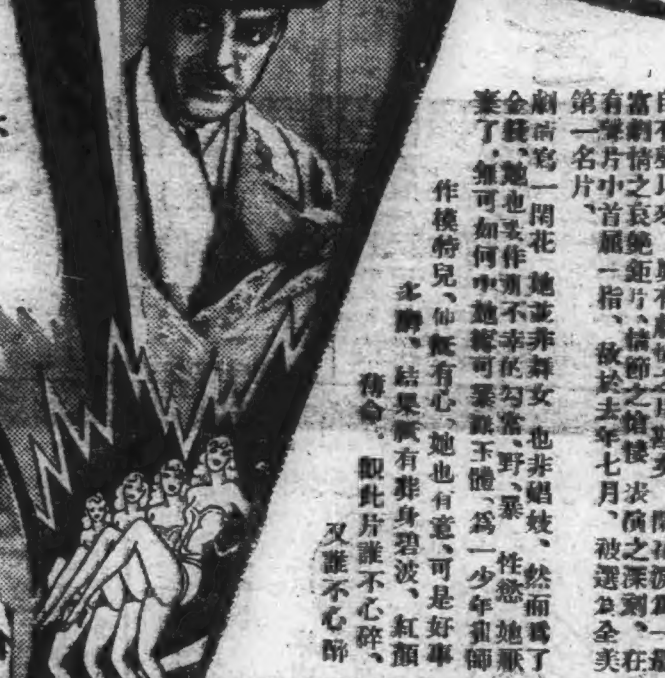 富劇情之哀艷鉅片、情節之愴悽 表演之深刻、在
有聲片中首屈一指、故於去年七月、被選為全美
第一名片、
劇描寫一閑花 她並非舞女 也非娼妓、然而為了
金錢、她也要作不幸的勾當、野、暴 性慾 她厭
棄了、無可如何中她寧可暴露玉體、為一少年畫師
作模特兒、他既有心、她也有意、可是好事
多磨、結果厥有葬身碧波、紅顏
薄命、觀此片誰不心碎、
又誰不心醉